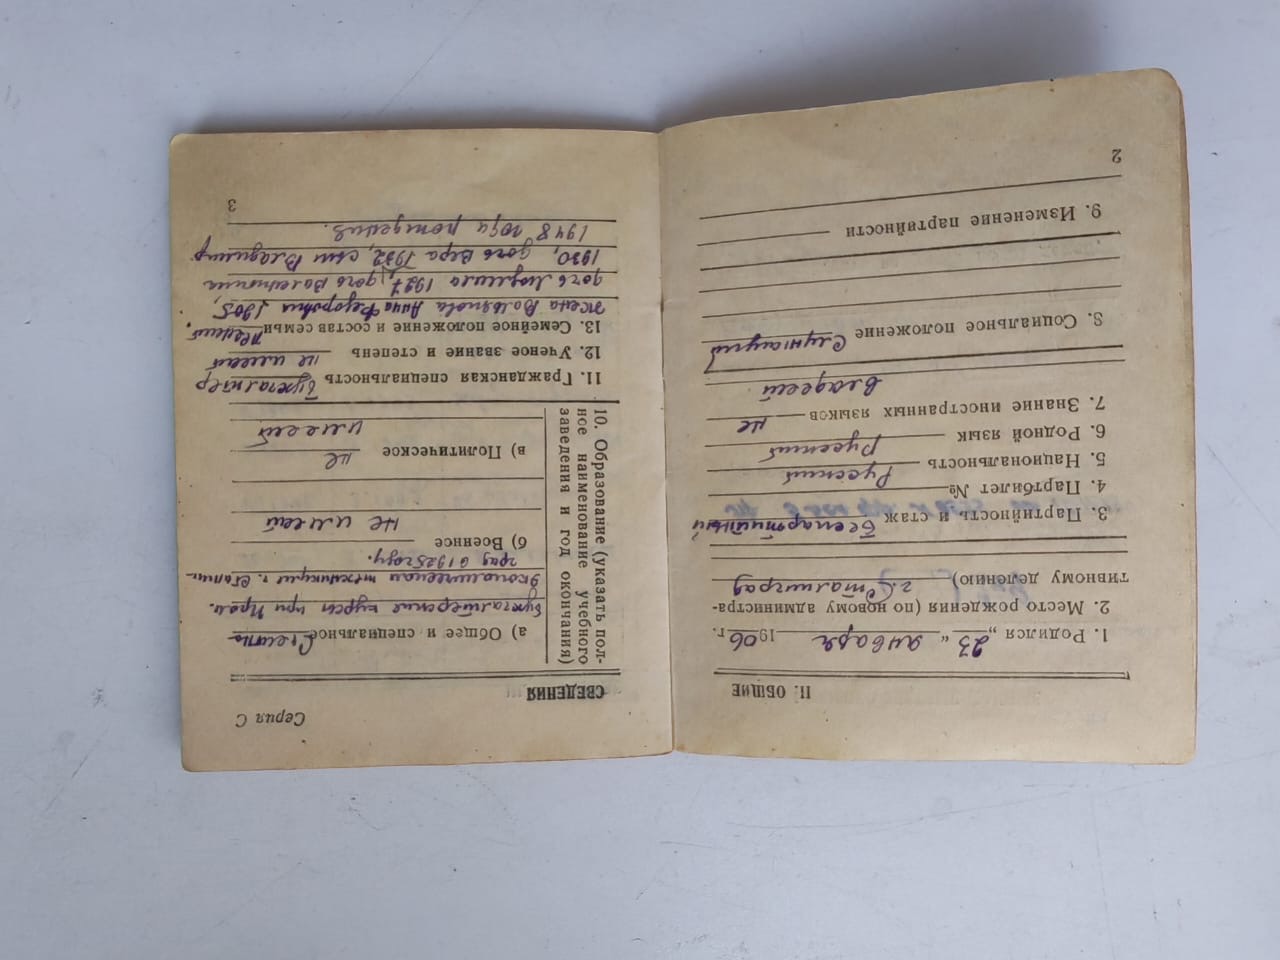 II. ОБЩИЕ
1. Родился „23“ января 1906 г.
2. Место рождения (по новому администра-
тивному делению) г. Сталинград
3. Партийность и стаж беспартийный
4. Партбилет №
5. Национальность Русский
6. Родной язык Русский
7. Знание иностранных языков не
владеет
8. Социальное положение Служащий
9. Изменение партийности
2
Серия С
СВЕДЕНИЯ
10. Образование (указать пол-
ное наименование учебного
заведения и год окончания)
а) Общее и специальное
Бухгалтерские курсы при Пром.
Экономическом техникуме г. Сталин-
град в 1925 году.
б) Военное
не имеет
в) Политическое не
имеет
11. Гражданская специальность бухгалтер
12. Ученое звание и степень не имеет
13. Семейное положение и состав семьи женат.
жена Анна Федоровна 1905,
дочь Людмила 1927, дочь Валентина
1930, дочь Вера 1932, сын Владимир
1948 года рождения.
3